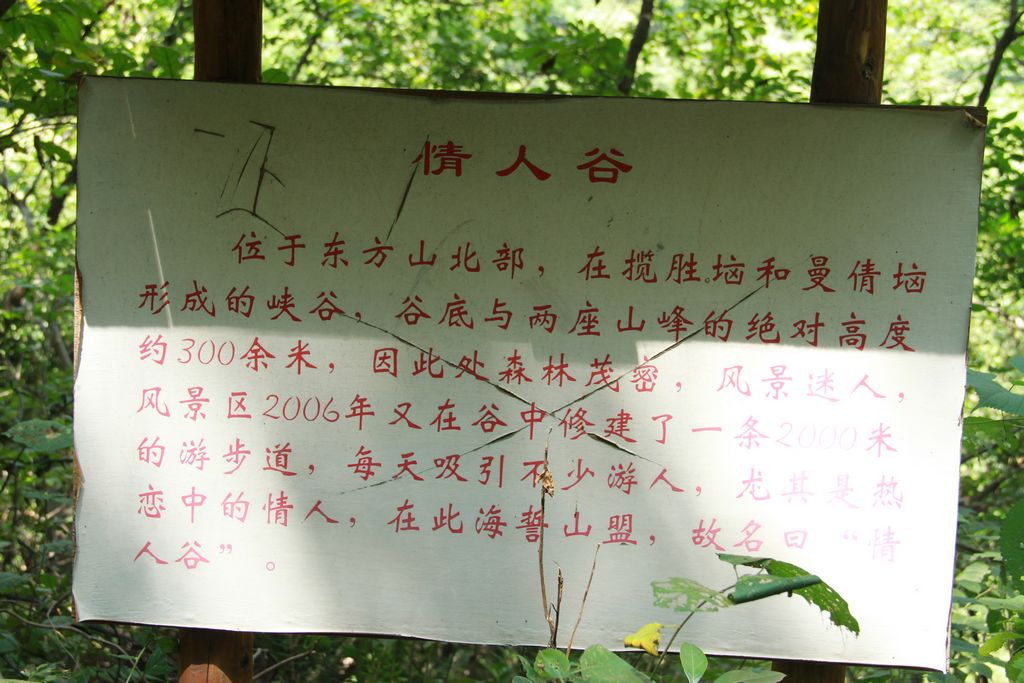 情人谷
位于东方山北部，在揽胜垴和曼倩垴
形成的峡谷，谷底与两座山峰的绝对高度
约300余米，因此处森林茂密，风景迷人，
风景区2006年又在谷中修建了一条2000米
的游步道，每天吸引不少游人，龙其是热
恋中的情人，在此海誓山盟，故名曰“情
人谷”。